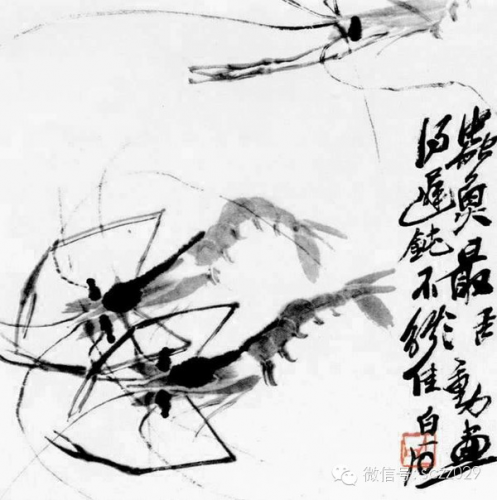 蟲魚最活動畫
得遲鈍不能佳 白石
微信号: